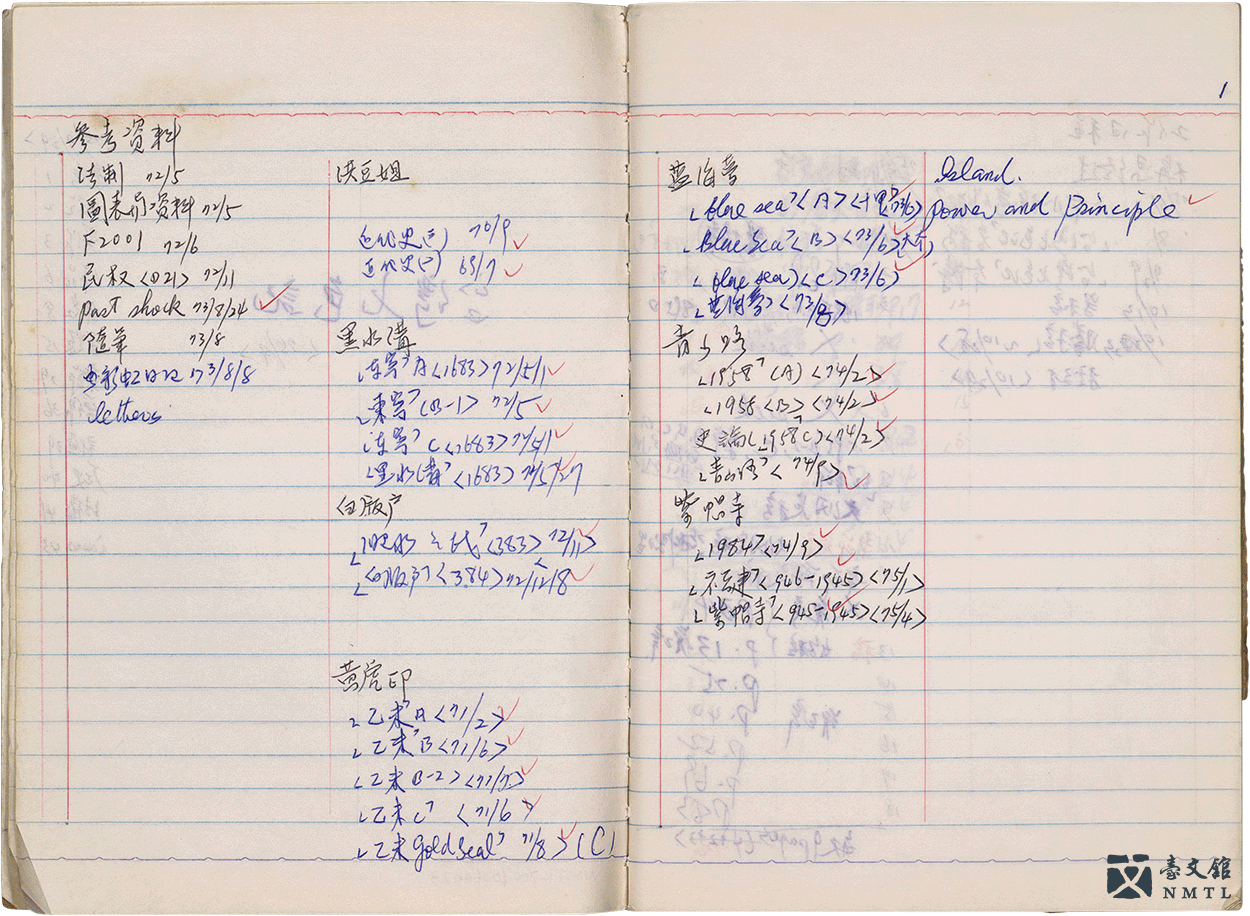 參考資料
法制 72/5
圖表前資料 72/5
F2001 72/6
民权<021> 72/11
past shock 73/8/24
隨筆 73/8
73/8/8
letters
洪豆姐
近代史(二) 70/9
近代史(一) 69/7
黑水溝
「凍寧」A<1683>72/5/1
「東寧」(B-1) 72/5
「凍寧」C<1683>72/5/1
「黑水溝」<1683>72/5/27
白版戶
<383> 72/11>
「白版戶」<384>72/12/8
黃虎印
「乙未」A<71/2>
「乙未」B<71/6>
「乙未B-2><71/7>
「乙未C」<71/6>
「乙未gold seal」 71/8>(C)
1
藍海夢
「blue sea」<A><73/6>
「Blue Sea」<B><73/6>
「blue sea><C>73/6>
「藍海夢」<73/8>
青山路
「1958」(A) <74/2>
「1958<B><74/2>
史論「1958」C><74/2>
「青山路」<74/9>
紫帽寺
「1984」<74/9>
<946-1945><75/1>
「紫帽寺」<945-1945><75/4>
Island.
Power and Principle
臺文館
NMTL